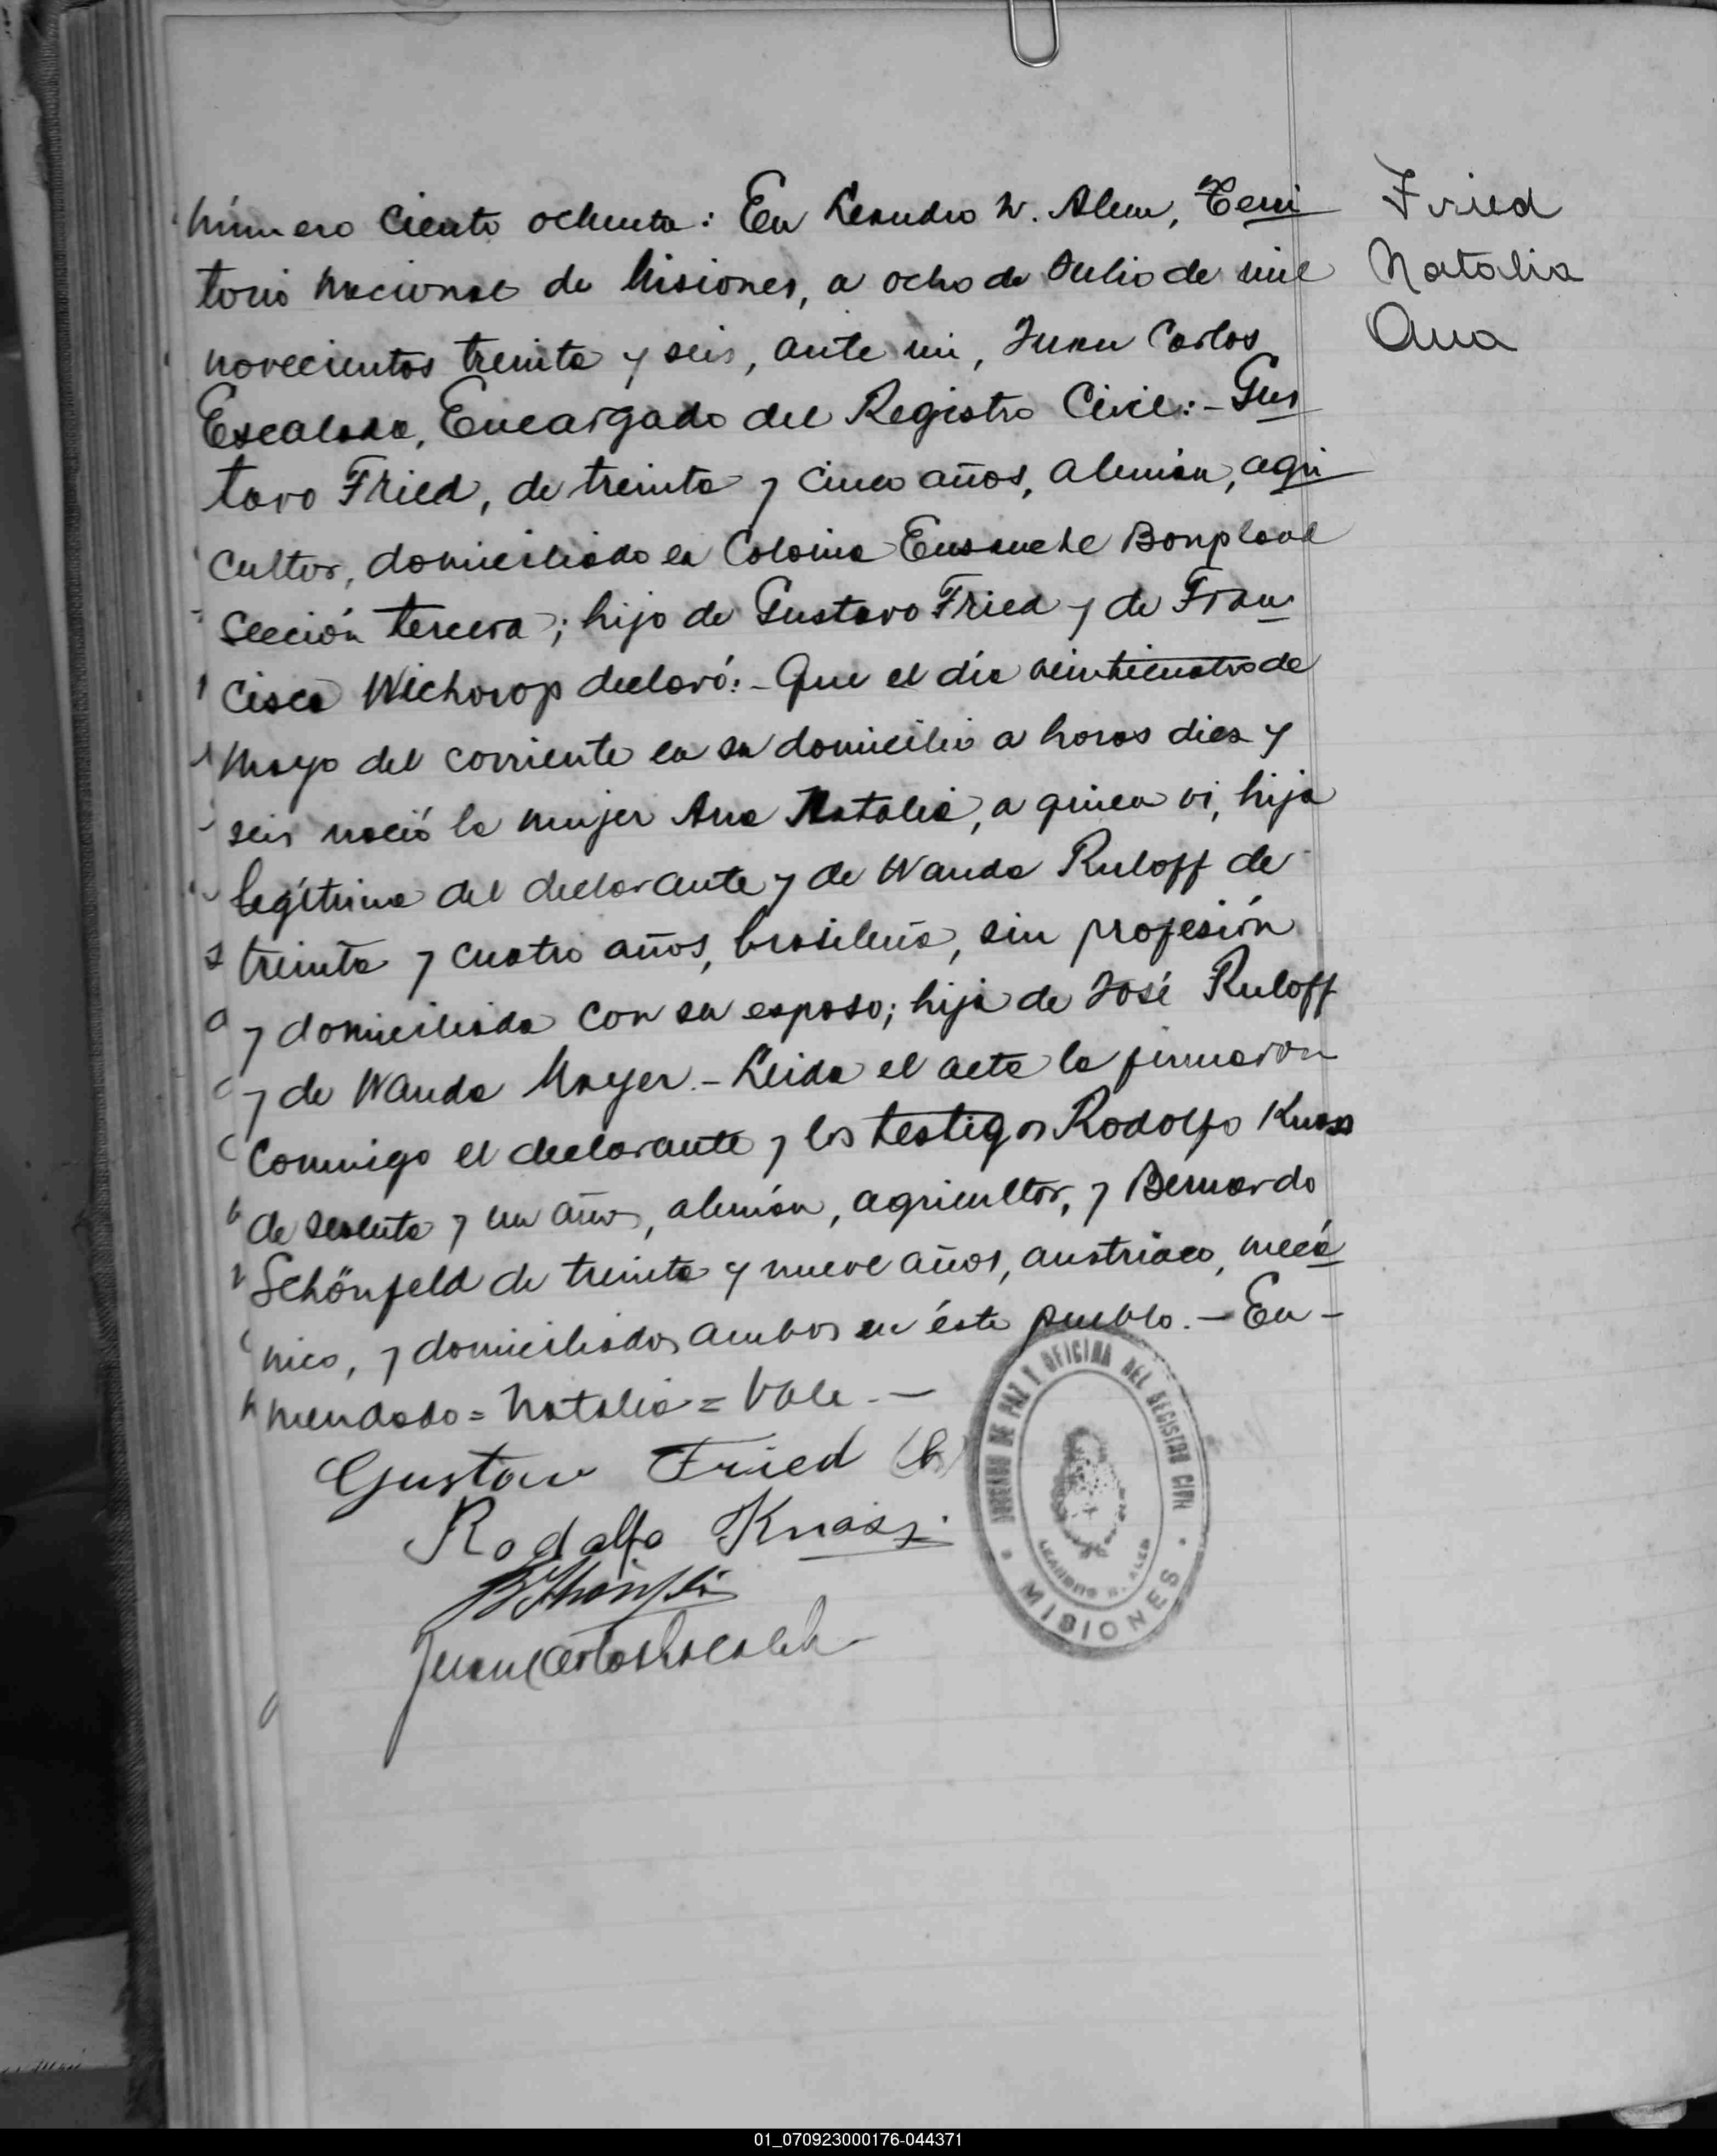 Número ciento ochenta: En Leandro N. Alem, Terri
torio Nacional de Misiones, a ocho de Julio de mil
novecientos treinta y seis, ante mi, Juan Carlos
Escalada, Encargado del Registro Civil:- Gus
tavo Fried, de treinta y cinco años, alemán, agri
cultor, domiciliado en Colonia Ensanche Bonpland
Sección tercera; hijo de Gustavo Fried y de Fran
cisca Wichorop declaró:- Que el día veinticuatro de
Mayo del corriente en su domicilio a horas diez y
seis nació la mujer Ana Natalia, a quien vi, hija
legítima del declarante y de Wanda Ruloff de
treinta y cuatro años, brasileña, sin profesión
y domiciliada con su esposo; hija de José Ruloff
y de Wanda Mayer.- Leida el acta la firmaron
conmigo el declarante y los testigos Rodolfo Knass
de sesenta y un años, alemán, agricultor, y Bernardo
Schönfeld de treinta y nueve años, austriaco, mecá
nico, y domiciliados ambos en éste pueblo.- En-
mendado = Natalia = Vale.-
Gustav Fried (h)
Rodolfo Knass
Juan Carlos Escalada
Fried
Natalia
Ana
JUZGADO DE PAZ Y OFICINA DEL REGISTRO CIVIL
LEANDRO N. ALEM
MISIONES
01_070923000176-044371